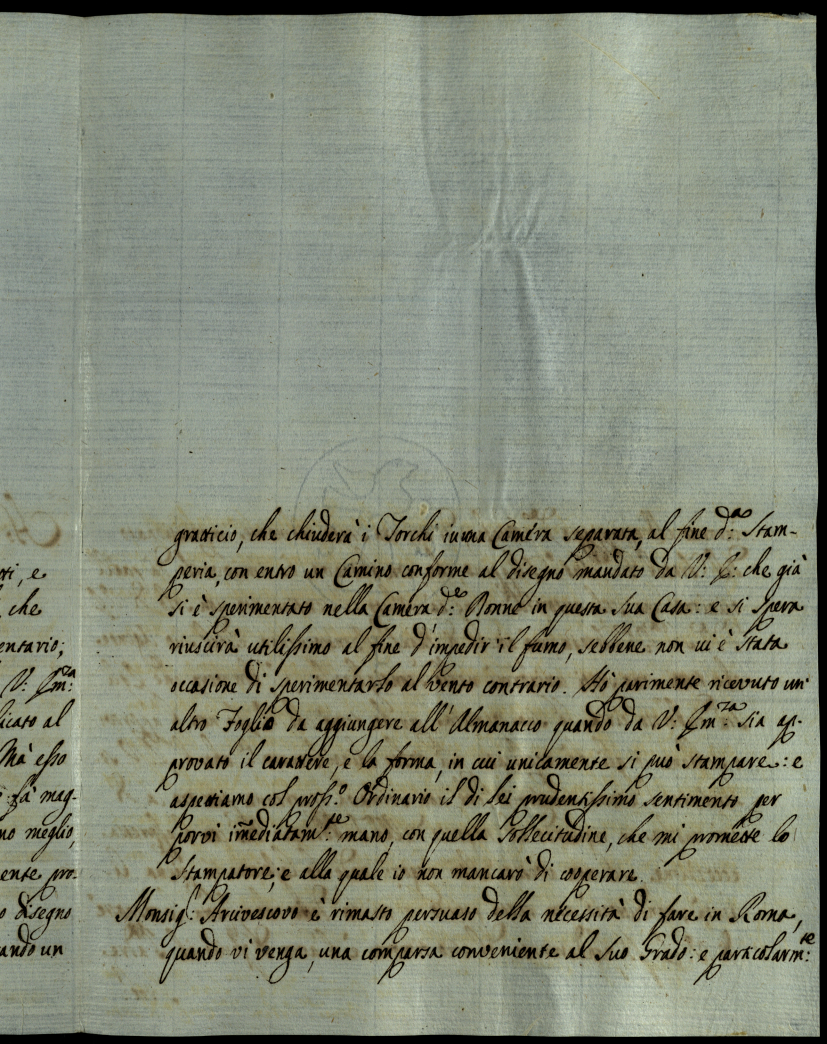 ti, e
che
entario;
V: Em:za
licato al
Mà esso
fà mag-
no meglio,
ente pro-
o disegno
ando un
graticcio, che chiuderà i Torchi in una Caméra separata, al fine d:a Stam-
peria, con entro un Camino conforme al disegno mandato da V: E: che già
si è sperimentato nella Caméra d:e Bonne in questa sua Casa: e si spera
riuscirà utilissimo al fine d'impedir'il fumo, sebbene non vi è stata
occasione di sperimentarlo al vento contrario. Hò parimente ricevuto un'
altro Foglio da aggiungere all'Almanacco quando da V: Em:za sia ap-
provato il carattere, e la forma, in cui unicamente si può stampare: e
aspettiamo col pross:o Ordinario il di Lei prudentissimo sentimento per
porvi im̃ediatam:te mano, con quella sollecitudine, che mi promette lo
Stampatore; e alla quale io non mancarò di cooperare.
Monsig:r Arcivescovo è rimasto persuaso della necessità di fare in Roma,
quando vi venga, una comparsa conveniente al suo Grado: e particolarm:te